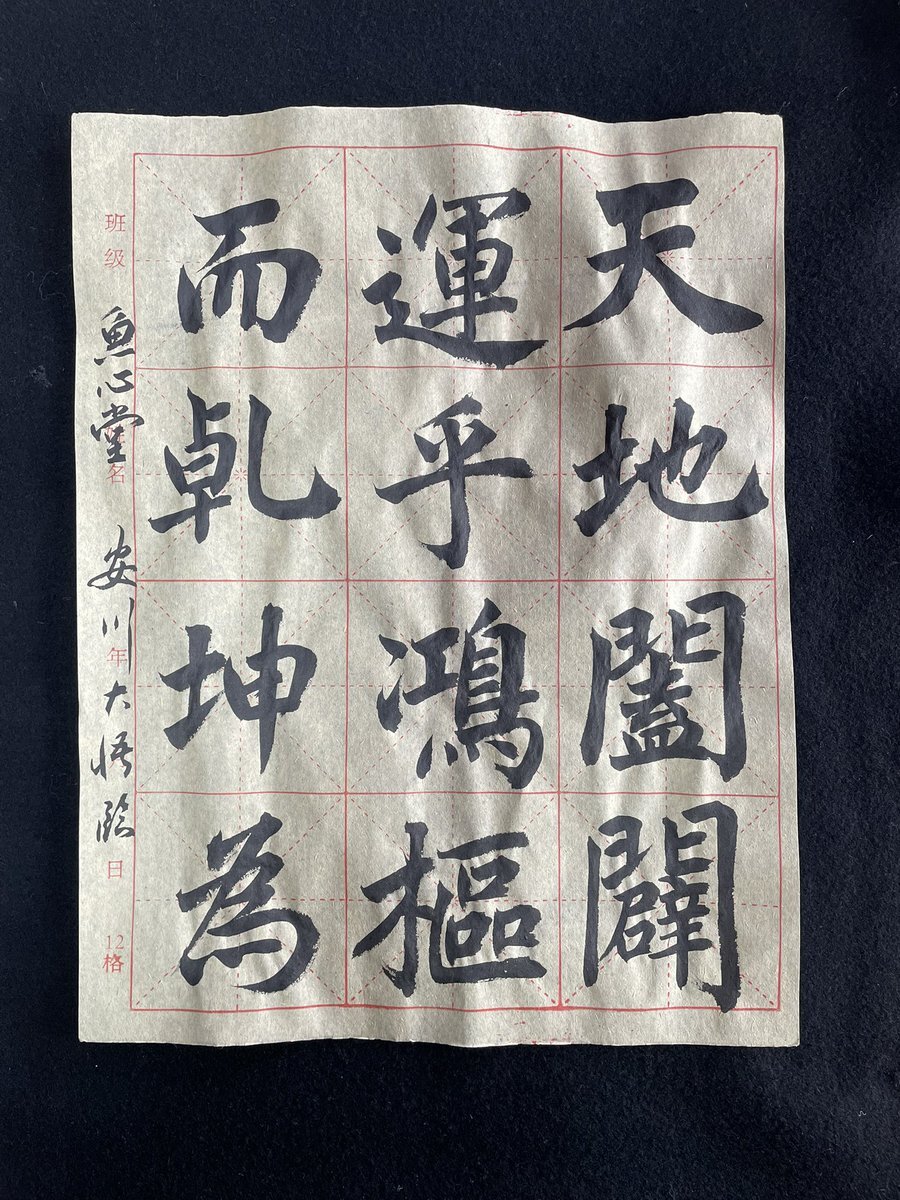 天地闔闢
運乎鴻樞
而乹坤為
魚心堂 安川大悟臨
班级
名
年
日
12格